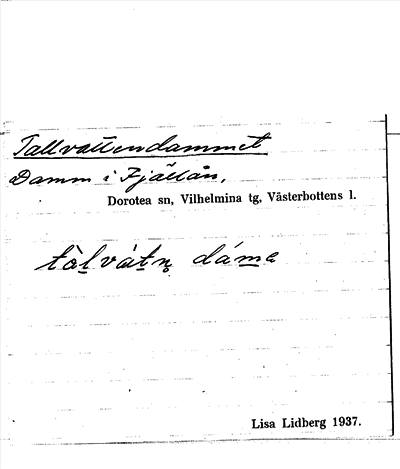 Tallvattendammet
Damm i Fjällån,
Dorotea sn, Vilhelmina tg, Västerbottens l.
tòl̲vàt̲n̥ dám̲e
Lisa Lidberg 1937.